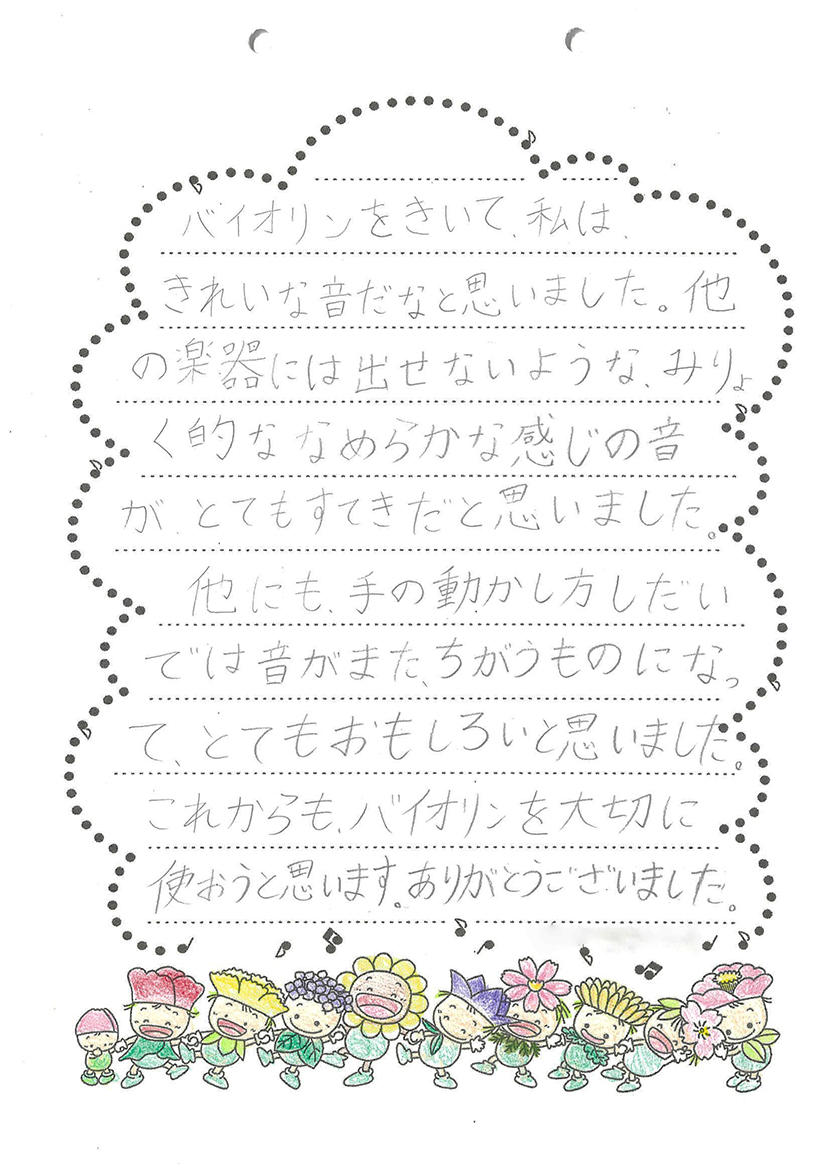 バイオリンをきいて、私は、
きれいな音だなと思いました。他
の楽器には出せないような、みりょ
く的な なめらかな感じの音
が、とてもすてきだと思いました。
他にも、手の動かし方しだい
では音がまた、ちがうものになっ
て、とてもおもしろいと思いました。
これからも、バイオリンを大切に
使おうと思います。ありがとうございました。